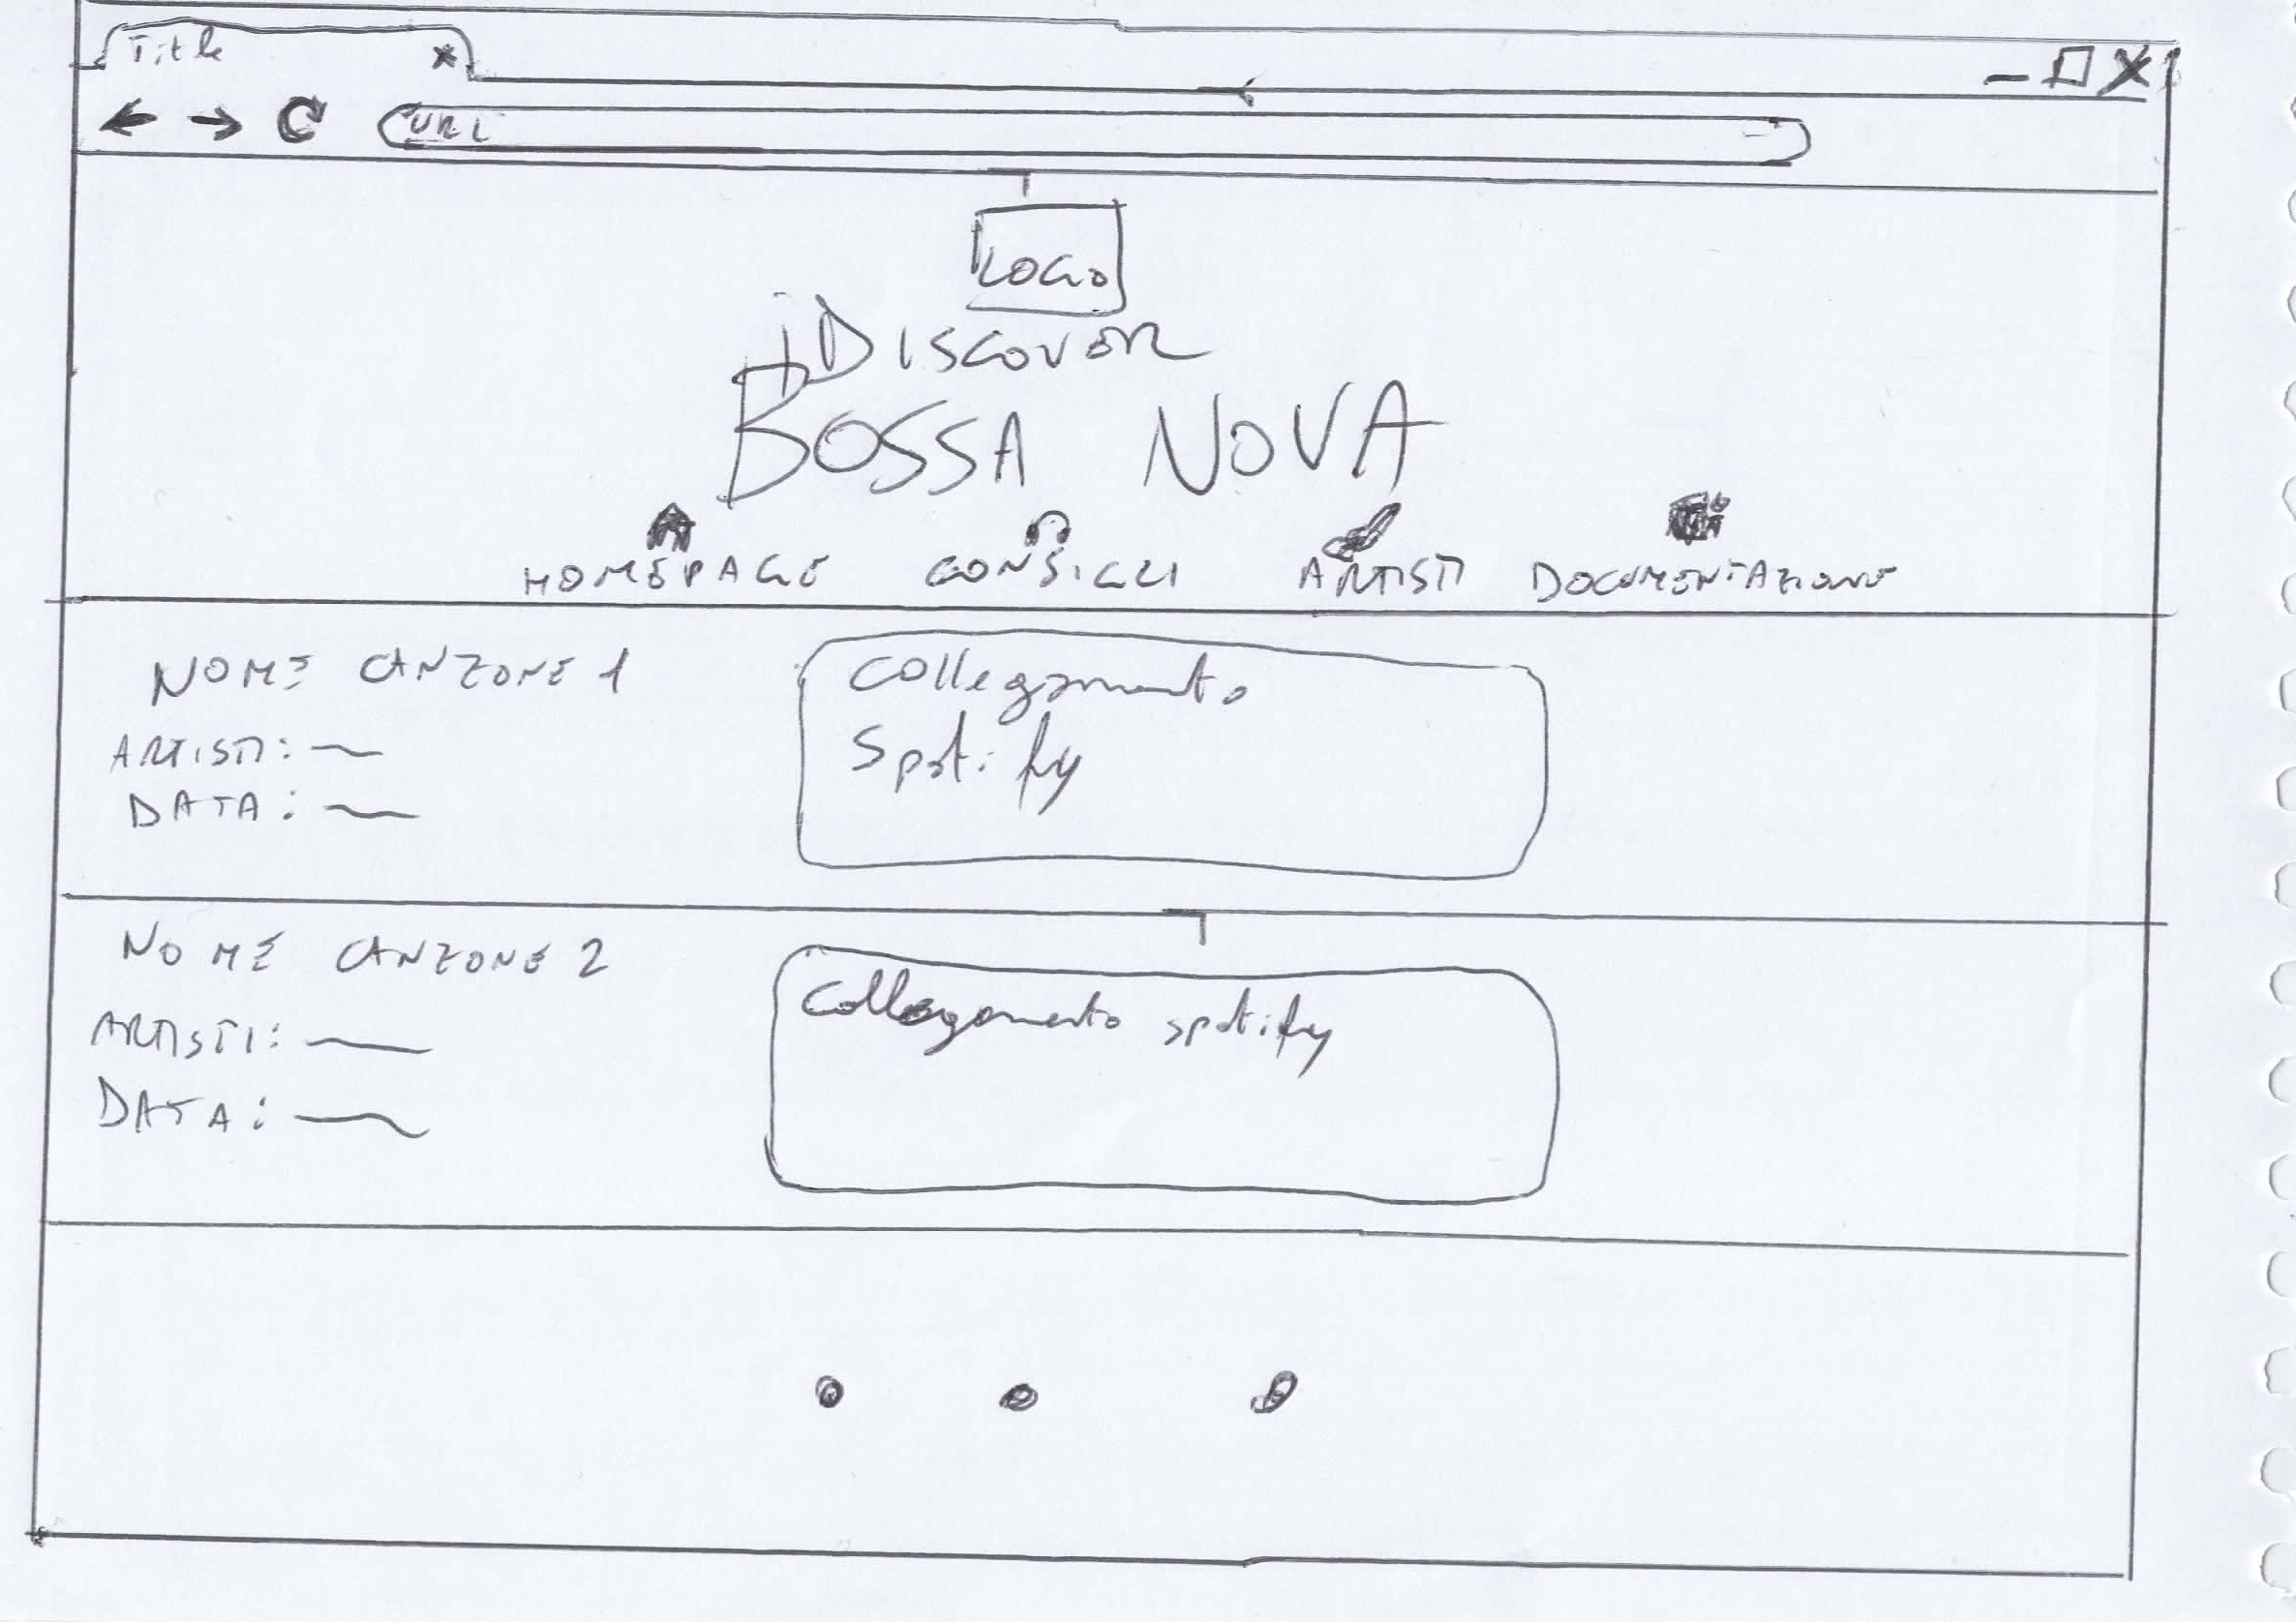 Title
URL
LOGO
DISCOVER
BOSSA NOVA
HOMEPAGE CONSIGLI ARTISTI DOCUMENTAZIONE
NOME CANZONE 1
ARTISTI:
DATA:
Collegamento
Spotify
NOME CANZONE 2
ARTISTI:
DATA:
Collegamento spotify